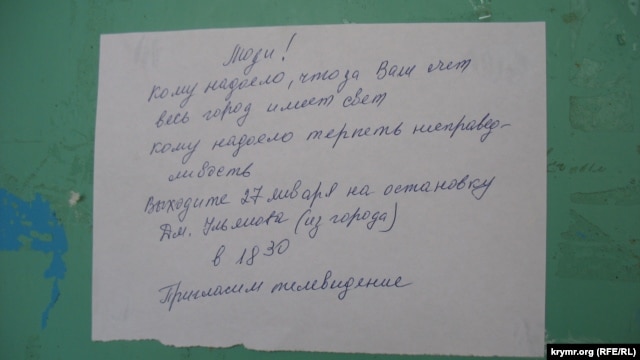 Люди!
Кому надоело, что за Ваш счет
весь город имеет свет
Кому надоело терпеть несправед-
ливость
Выходите 27 января на остановку
Дм. Ульянова (из города)
в 18 30
Пригласим телевидение
krymr.org (RFE/RL)